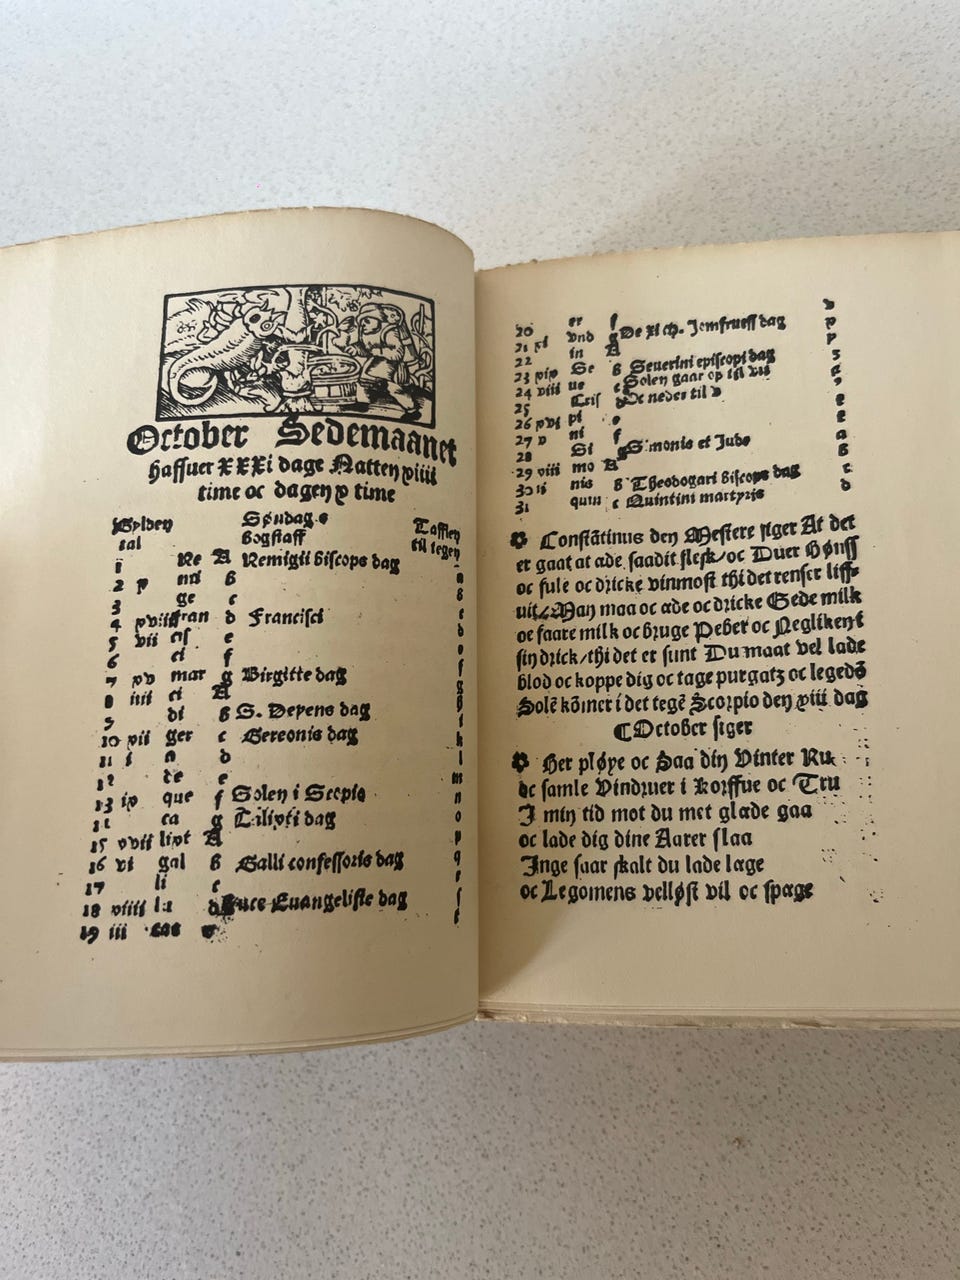 October Sedemaanet
haffuer XXXi dage Natten xiiii
time oc dagen x time
Gylden Søndag s Tafflen
tal Bogstaff til tegen
1 Re A Remigii biscops dag a
2 x mi b b
3 ge c c
4 xviii fran d Francisci d
5 vii cis e e
6 ci f f
7 xv mar g Birgitte dag g
8 iiii ci A h
9 di b S. Depens dag i
10 xii ger c Gereonis dag k
11 i a d l
12 de e m
13 ix que f Solen i Scorpio n
ca g Calixti dag o
15 xvii lixt A p
16 vi gal b Galli confessoris dag q
17 li c r
18 xiiii lu d Luce Euangeliste dag s
19 iii cas e t
20 er f v
21 xi vnd g De xi th. Jomfrueff dag x
22 in A y
23 xix Se b Seuerini episcopi dag z
24 viii ue c Solen gaar op til vii
25 Cris d Oc neder til v
26 xvi pi e
27 v ni f
28 Si g Simonis et Jude a
29 xiii mo A b
30 ii nis b Theodogari biscops dag c
31 quin c Quintini martyris d
Constãtinus den Mestere siger At det
er gaat at æde saadit flesk/oc Duer Hønss
oc fule oc dricke vinmost thi det renser liff-
uit/Man maa oc æde oc dricke Gede milk
oc faare milk oc bruge Peber oc Neglikeni
sin drick/thi det er sunt Du maat vel lade
blod oc koppe dig oc tage purgatz oc legedõ
Solẽ kõmer i det tegẽ Scorpio den xiii dag
⸿October siger
Her pløye oc Saa din Vinter Ru
oc samle Vindruer i Korffue oc Tru
I min tid mot du met glæde gaa
oc lade dig dine Aarer slaa
Inge saar skalt du lade læge
oc Legomens velløst vil oc spæge